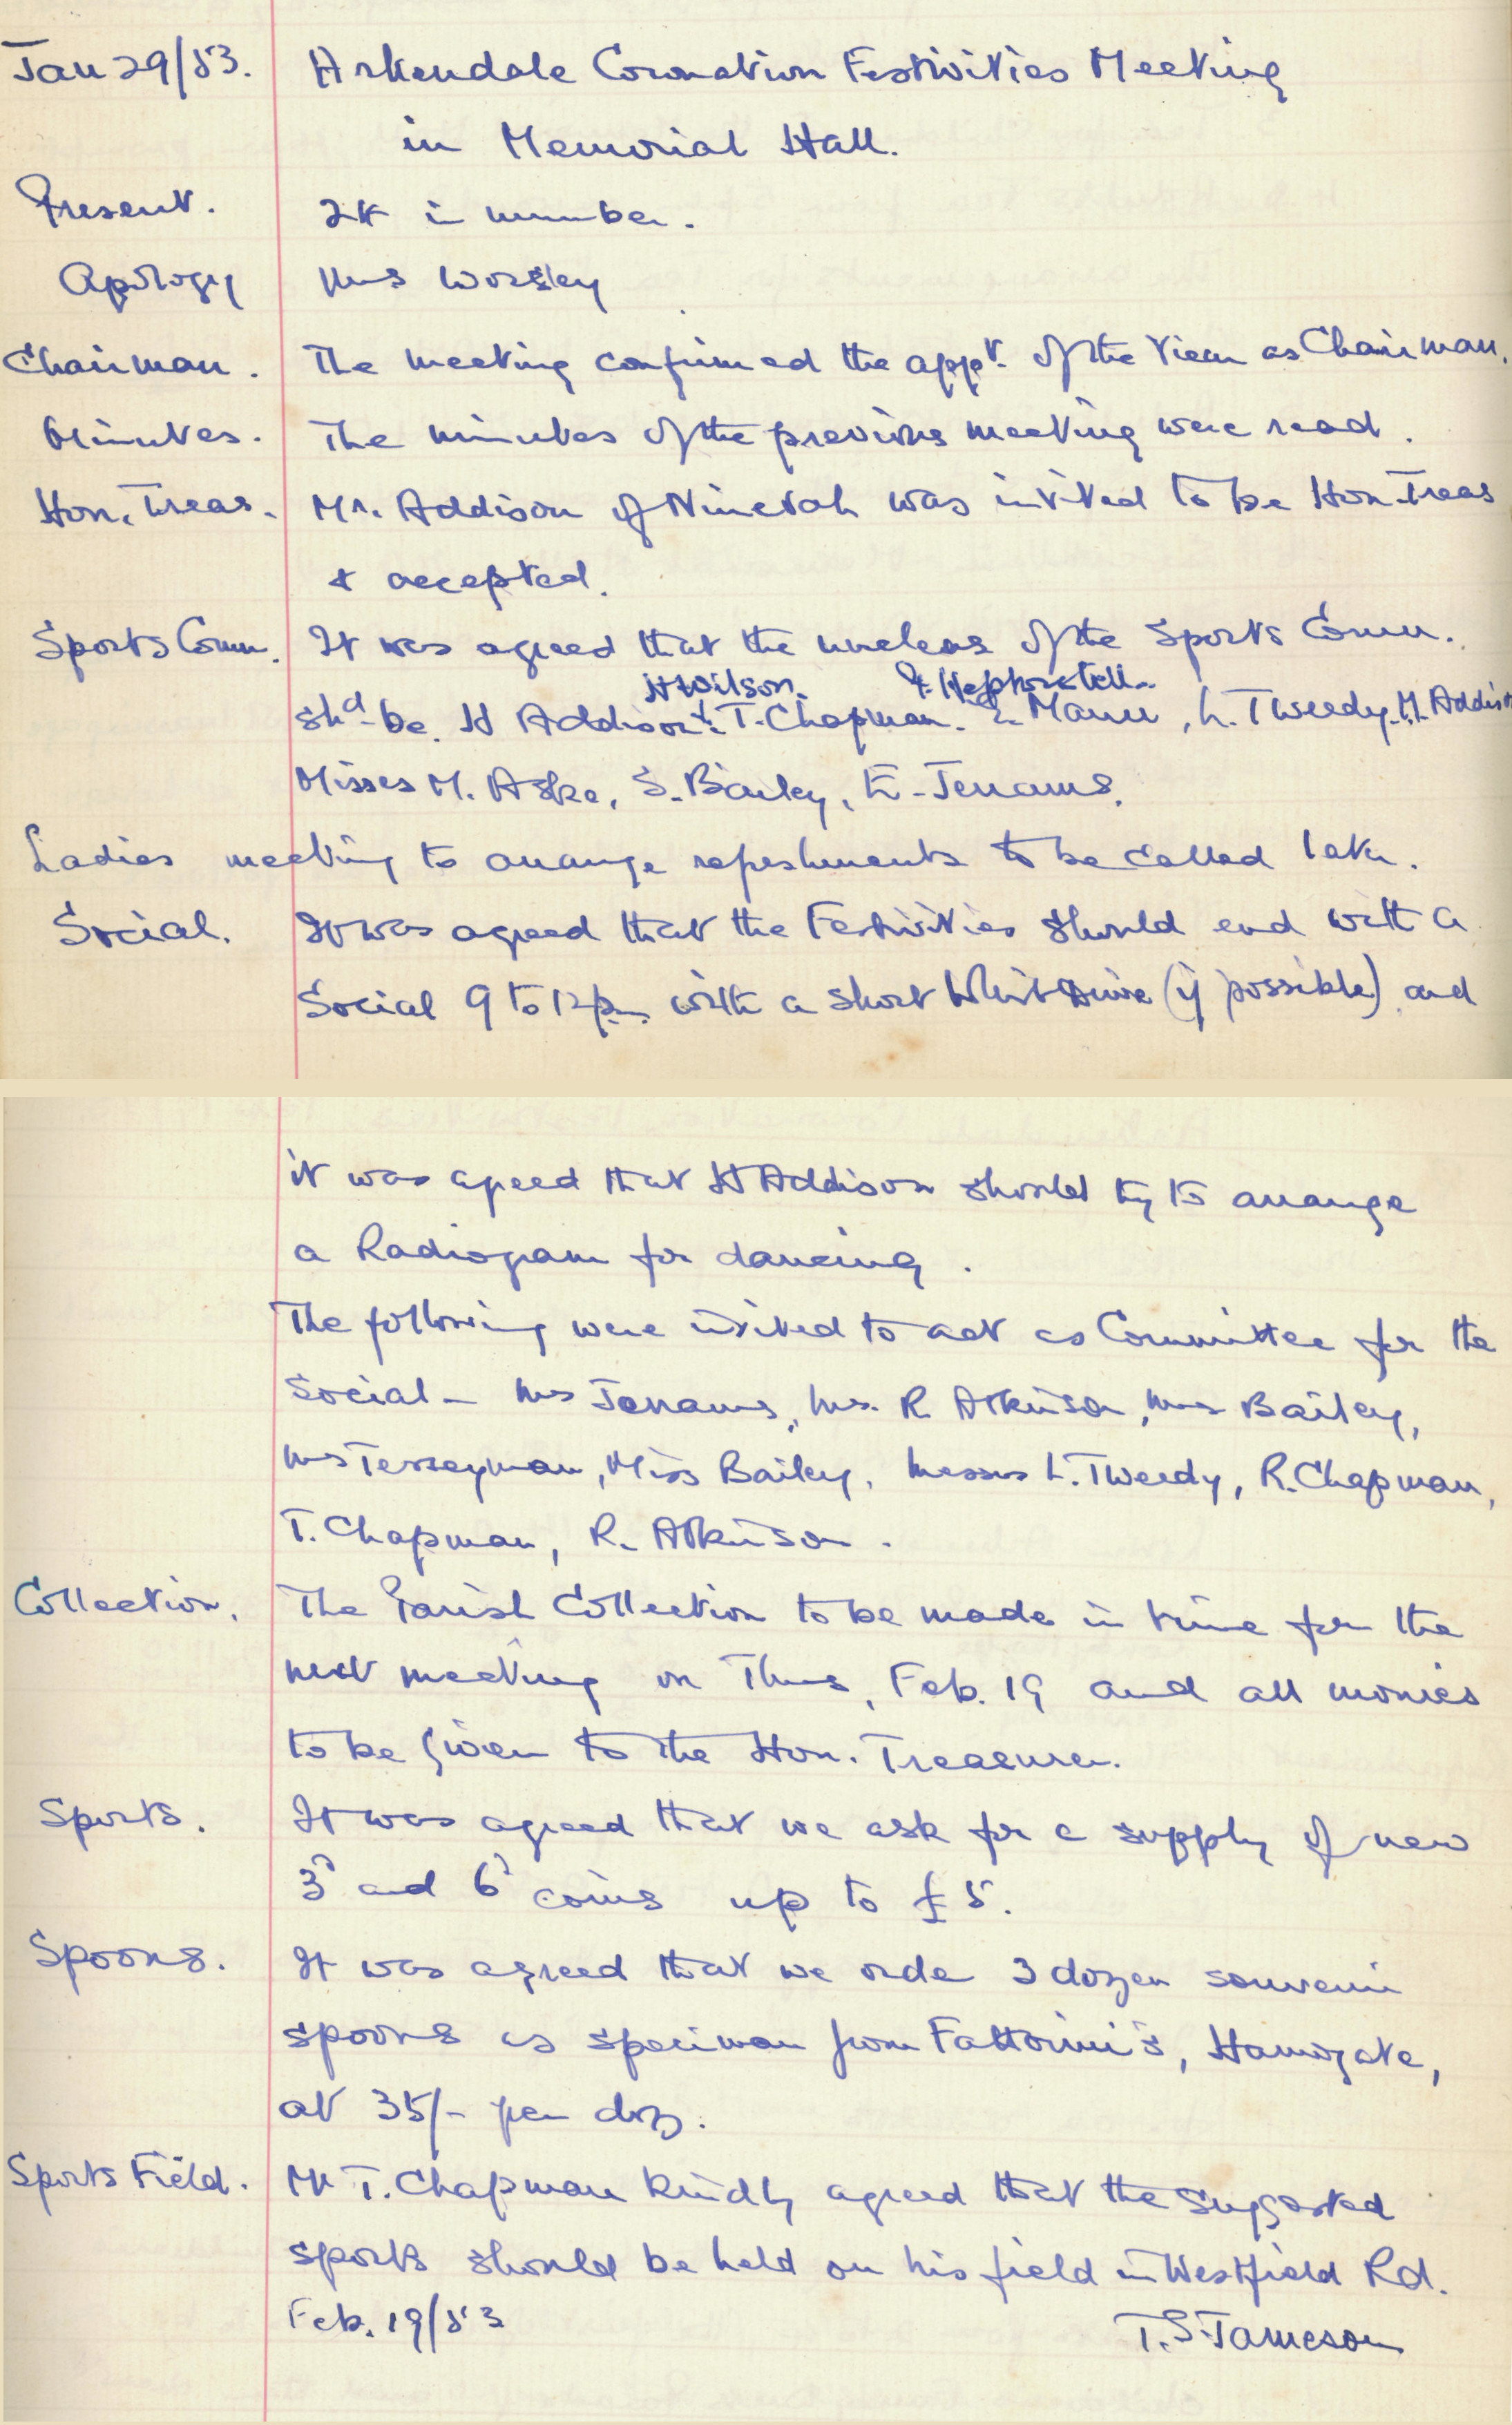 Jan 29/53. Arkendale Coronation Festivities Meeting
in Memorial Hall.
Present. 24 in number.
Apology Mrs Worsley
Chairman. The meeting confirmed the appt. of the Vicar as Chairman.
Minutes. The minutes of the previous meeting were read.
Hon. Treas. Mr. Addison of Ninevah was invited to be Hon Treas
& accepted.
Sports Comm. It was agreed that the nucleus of the Sports Comm.
H Wilson. F. Hephorstell
shd be. H Addison T. Chapman. Mann, L. Tweedy. H. Addison
Misses M. Aske, S. Bailey, E. Jenams.
Ladies meeting to arrange refreshments to be called later.
Social. It was agreed that the Festivities should end with a
Social 9 to 12pm with a short Whist Drive (if possible) and
it was agreed that H Addison should try to arrange
a Radiogram for dancing.
The following were invited to act as Committee for the
Social - Mrs Jenams, Mrs. R Atkinson, Mrs Bailey,
Mrs Terseyman, Miss Bailey, Messrs L. Tweedy, R. Chapman,
T. Chapman, R. Atkinson.
Collection. The Parish Collection to be made in time for the
next meeting on Thurs, Feb. 19 and all monies
to be given to the Hon. Treasurer.
Sports. It was agreed that we ask for a supply of new
3d and 6d coins up to £5.
Spoons. It was agreed that we order 3 dozen souvenir
spoons as specimen from Fattorini's, Harrogate,
at 35/- per doz.
Sports Field. Mr T. Chapman kindly agreed that the suggested
sports should be held on his field in Westfield Rd.
Feb. 19/53 T. S. Jameson